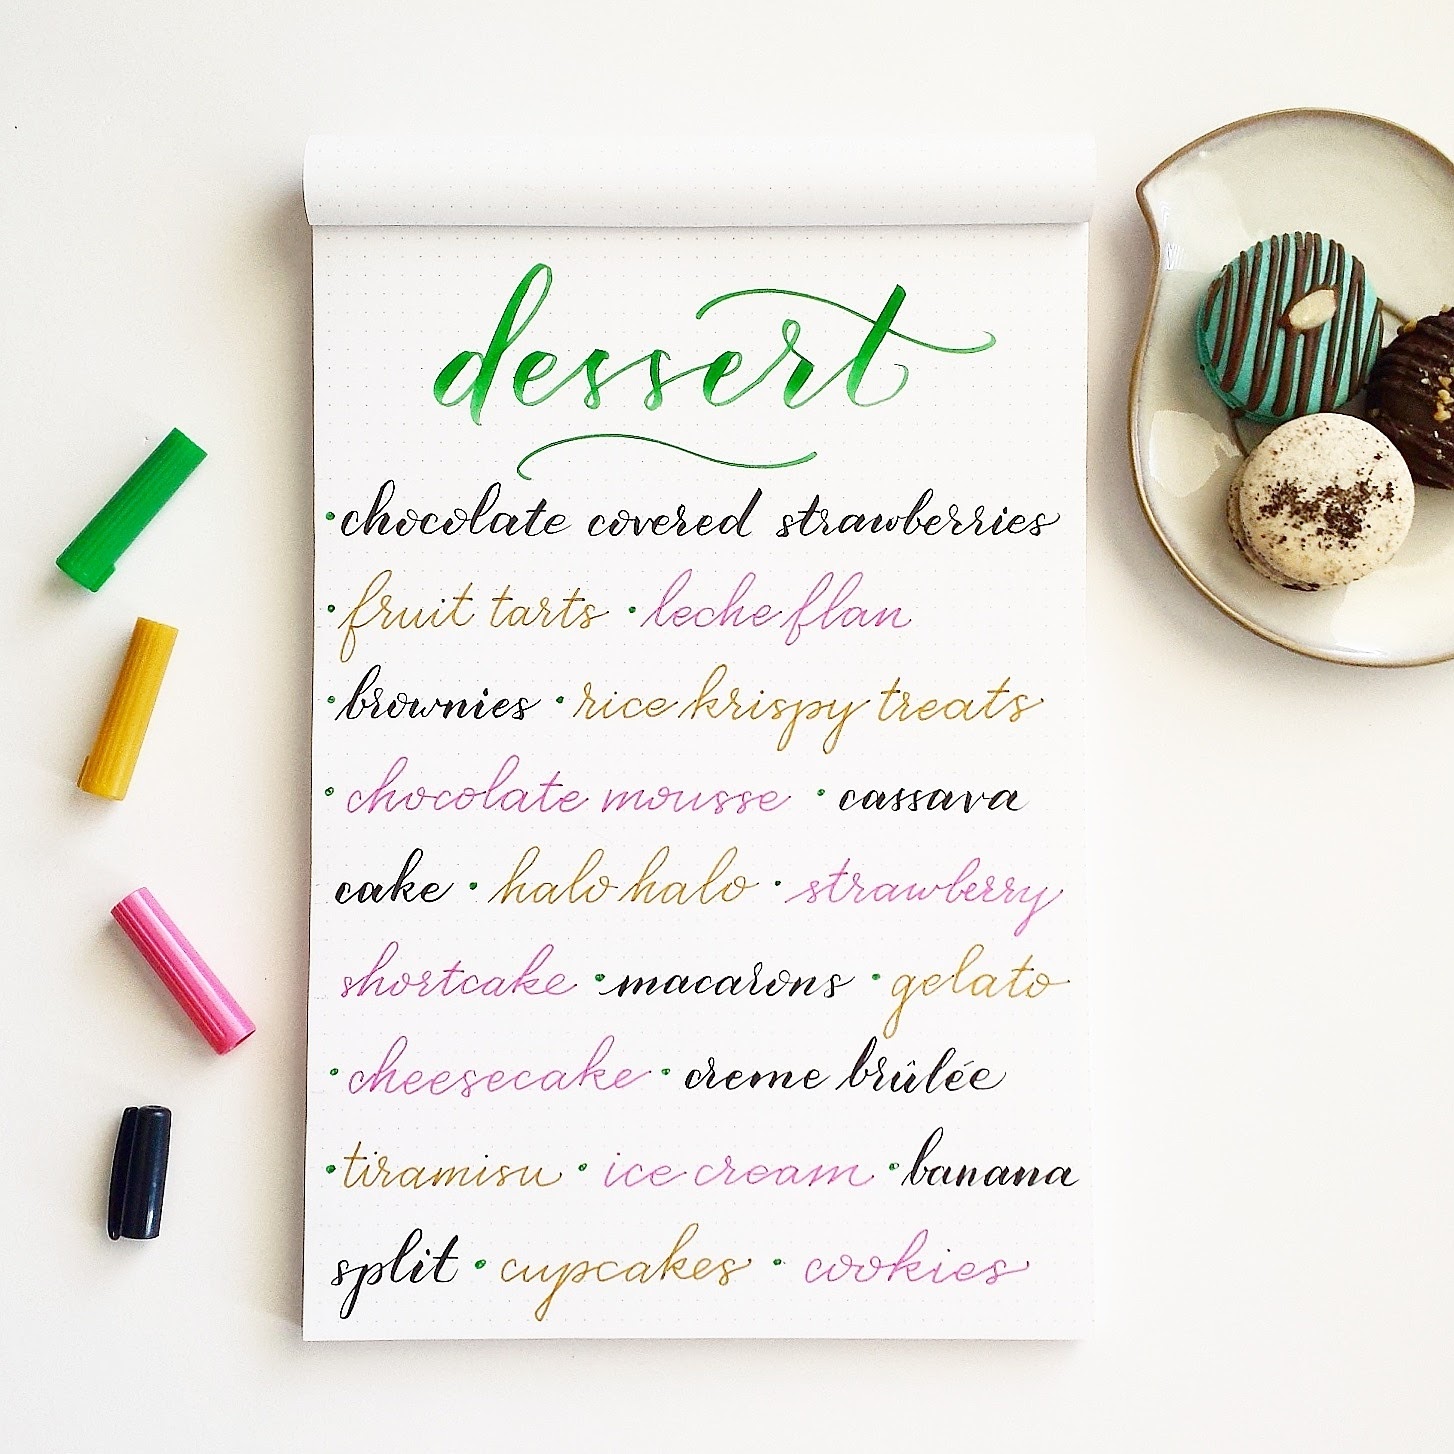 dessert
•chocolate covered strawberries
•fruit tarts •leche flan
•brownies •rice krispy treats
•chocolate mousse •cassava
cake •halo halo •strawberry
shortcake •macarons •gelato
•cheesecake •creme brûlée
•tiramisu •ice cream •banana
split •cupcakes •cookies